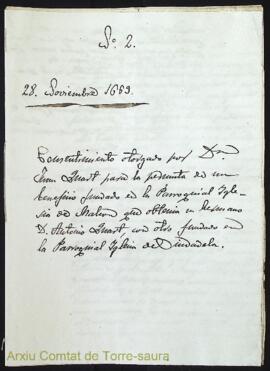 Nº 2.
28. Noviembre 1653.
Consentimiento otorgado por Dn.
Juan Quart para la permuta de un
beneficio fundado en la Parroquial Igle-
sia de Mahon que obtenia su hermano
D. Antonio Quart, con otro fundado en
la Parroquial Iglesia de Ciudadela.
Arxiu Comtat de Torre-saura